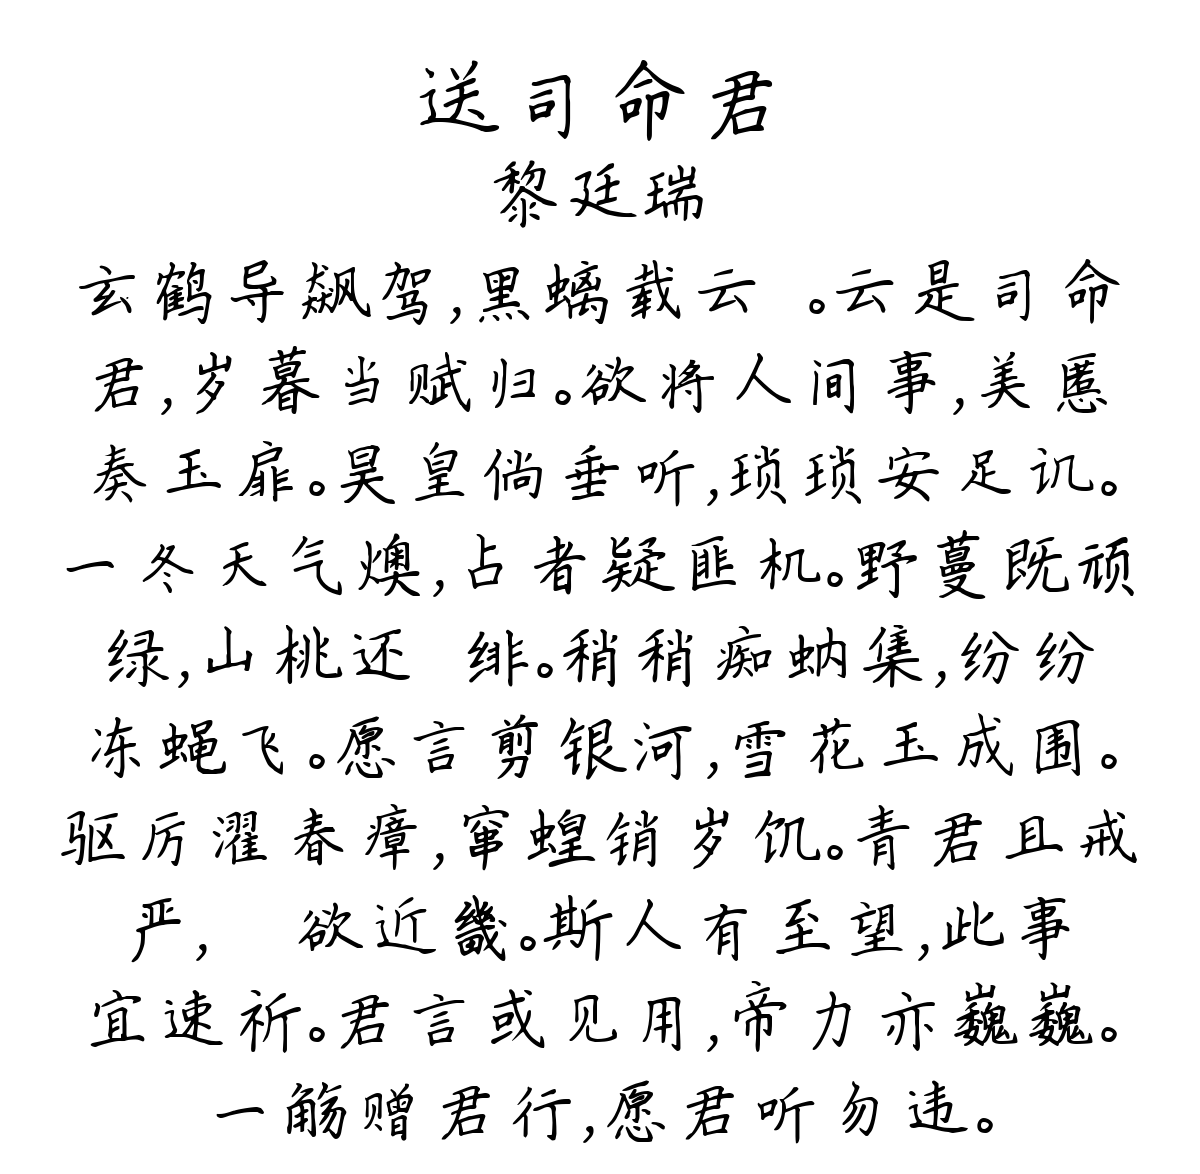 送司命君
黎廷瑞
玄鹤导飙驾,黑螭载云 。云是司命
君,岁暮当赋归。欲将人间事,美慝
奏玉扉。昊皇倘垂听,琐琐安足讥。
一冬天气燠,占者疑匪机。野蔓既顽
绿,山桃还 绯。稍稍痴蚋集,纷纷
冻蝇飞。愿言剪银河,雪花玉成围。
驱厉濯春瘴,窜蝗销岁饥。青君且戒
严, 欲近畿。斯人有至望,此事
宜速祈。君言或见用,帝力亦巍巍。
一觞赠君行,愿君听勿违。